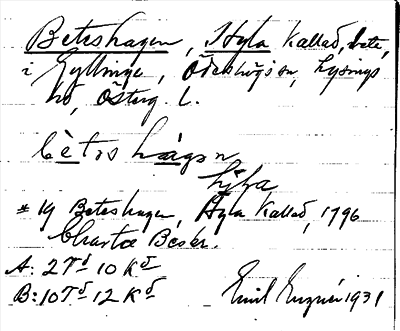 Beteshagen, Hyla Kallad, bete,
i Gyllinge, Ödeshögs sn, Lysings
hd, Österg. l.
bètəs hàgən
hyla
* 19 Beteshagen, Hyla Kallad, 1796
Charta Beskr.
A: 2 Td 10 Kd
B: 10 Td 12 Kd
Emil 1931